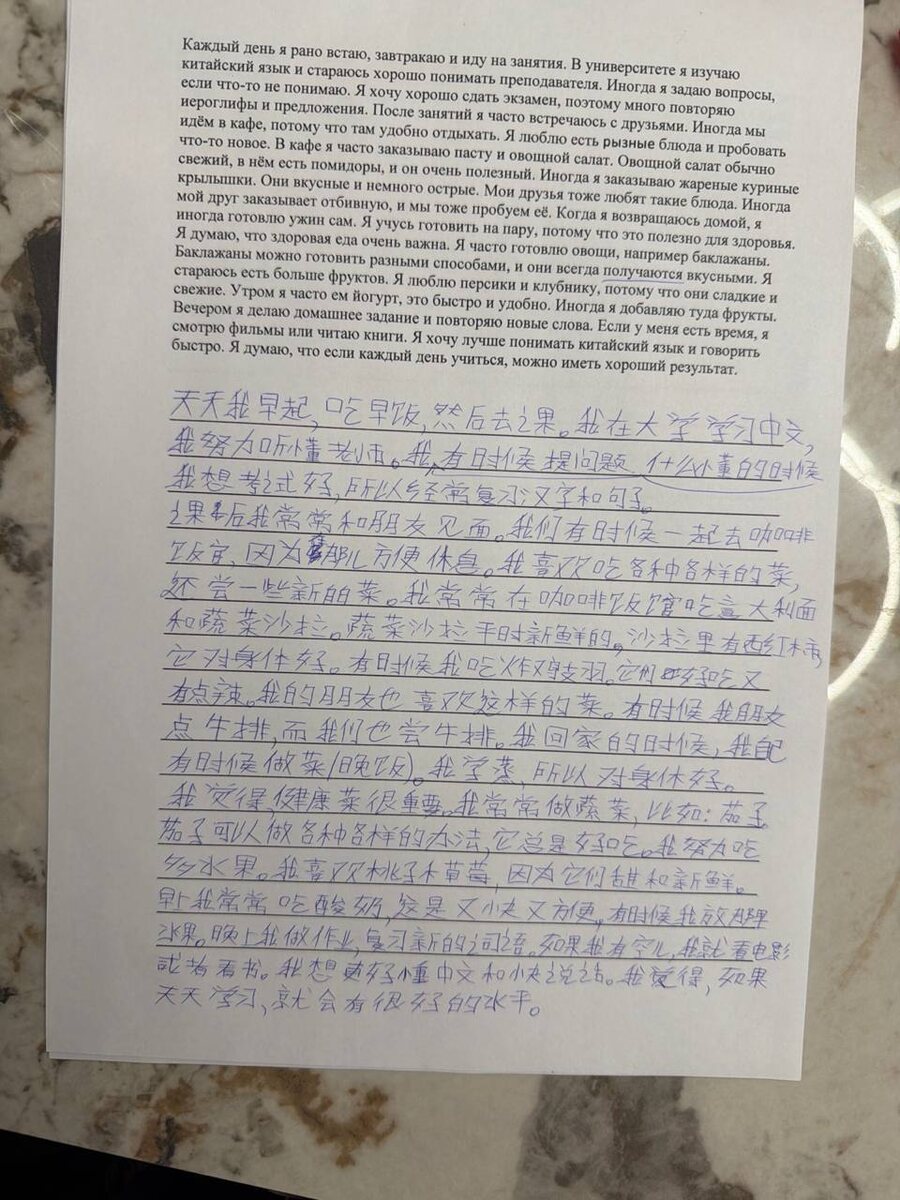 Каждый день я рано встаю, завтракаю и иду на занятия. В университете я изучаю
китайский язык и стараюсь хорошо понимать преподавателя. Иногда я задаю вопросы,
если что-то не понимаю. Я хочу хорошо сдать экзамен, поэтому много повторяю
иероглифы и предложения. После занятий я часто встречаюсь с друзьями. Иногда мы
идём в кафе, потому что там удобно отдыхать. Я люблю есть рызные блюда и пробовать
что-то новое. В кафе я часто заказываю пасту и овощной салат. Овощной салат обычно
свежий, в нём есть помидоры, и он очень полезный. Иногда я заказываю жареные куриные
крылышки. Они вкусные и немного острые. Мои друзья тоже любят такие блюда. Иногда
мой друг заказывает отбивную, и мы тоже пробуем её. Когда я возвращаюсь домой, я
иногда готовлю ужин сам. Я учусь готовить на пару, потому что это полезно для здоровья.
Я думаю, что здоровая еда очень важна. Я часто готовлю овощи, например баклажаны.
Баклажаны можно готовить разными способами, и они всегда получаются вкусными. Я
стараюсь есть больше фруктов. Я люблю персики и клубнику, потому что они сладкие и
свежие. Утром я часто ем йогурт, это быстро и удобно. Иногда я добавляю туда фрукты.
Вечером я делаю домашнее задание и повторяю новые слова. Если у меня есть время, я
смотрю фильмы или читаю книги. Я хочу лучше понимать китайский язык и говорить
быстро. Я думаю, что если каждый день учиться, можно иметь хороший результат.
天天我早起,吃早饭,然后去上课。我在大学学习中文,
我努力听懂老师。我有时候提问题 什么懂的时候
我想考试好,所以经常复习汉字和句子。
课后我常常和朋友见面。我们有时候一起去咖啡
饭馆,因为那儿方便休息。我喜欢吃各种各样的菜,
还尝一些新的菜。我常常在咖啡饭馆吃意大利面
和蔬菜沙拉。蔬菜沙拉平时新鲜的。沙拉里有西红柿
它对身体好。有时候我吃炸鸡翅。它们好吃又
有点辣。我的朋友也喜欢这样的菜。有时候我朋友
点牛排,而我们也尝牛排。我回家的时候,我自己
有时候做菜(晚饭)。我学蒸,所以对身体好。
我觉得健康菜很重要。我常常做蔬菜,比如:茄子
茄子可以做各种各样的办法,它总是好吃。我努力吃
多水果。我喜欢桃子和草莓,因为它们甜和新鲜。
早上我常常吃酸奶,这是又快又方便。有时候我放那里
水果。晚上我做作业,复习新的词语。如果我有空儿,我就看电影
或者看书。我想更好懂中文和快说话。我觉得,如果
天天学习,就会有很好的水平。